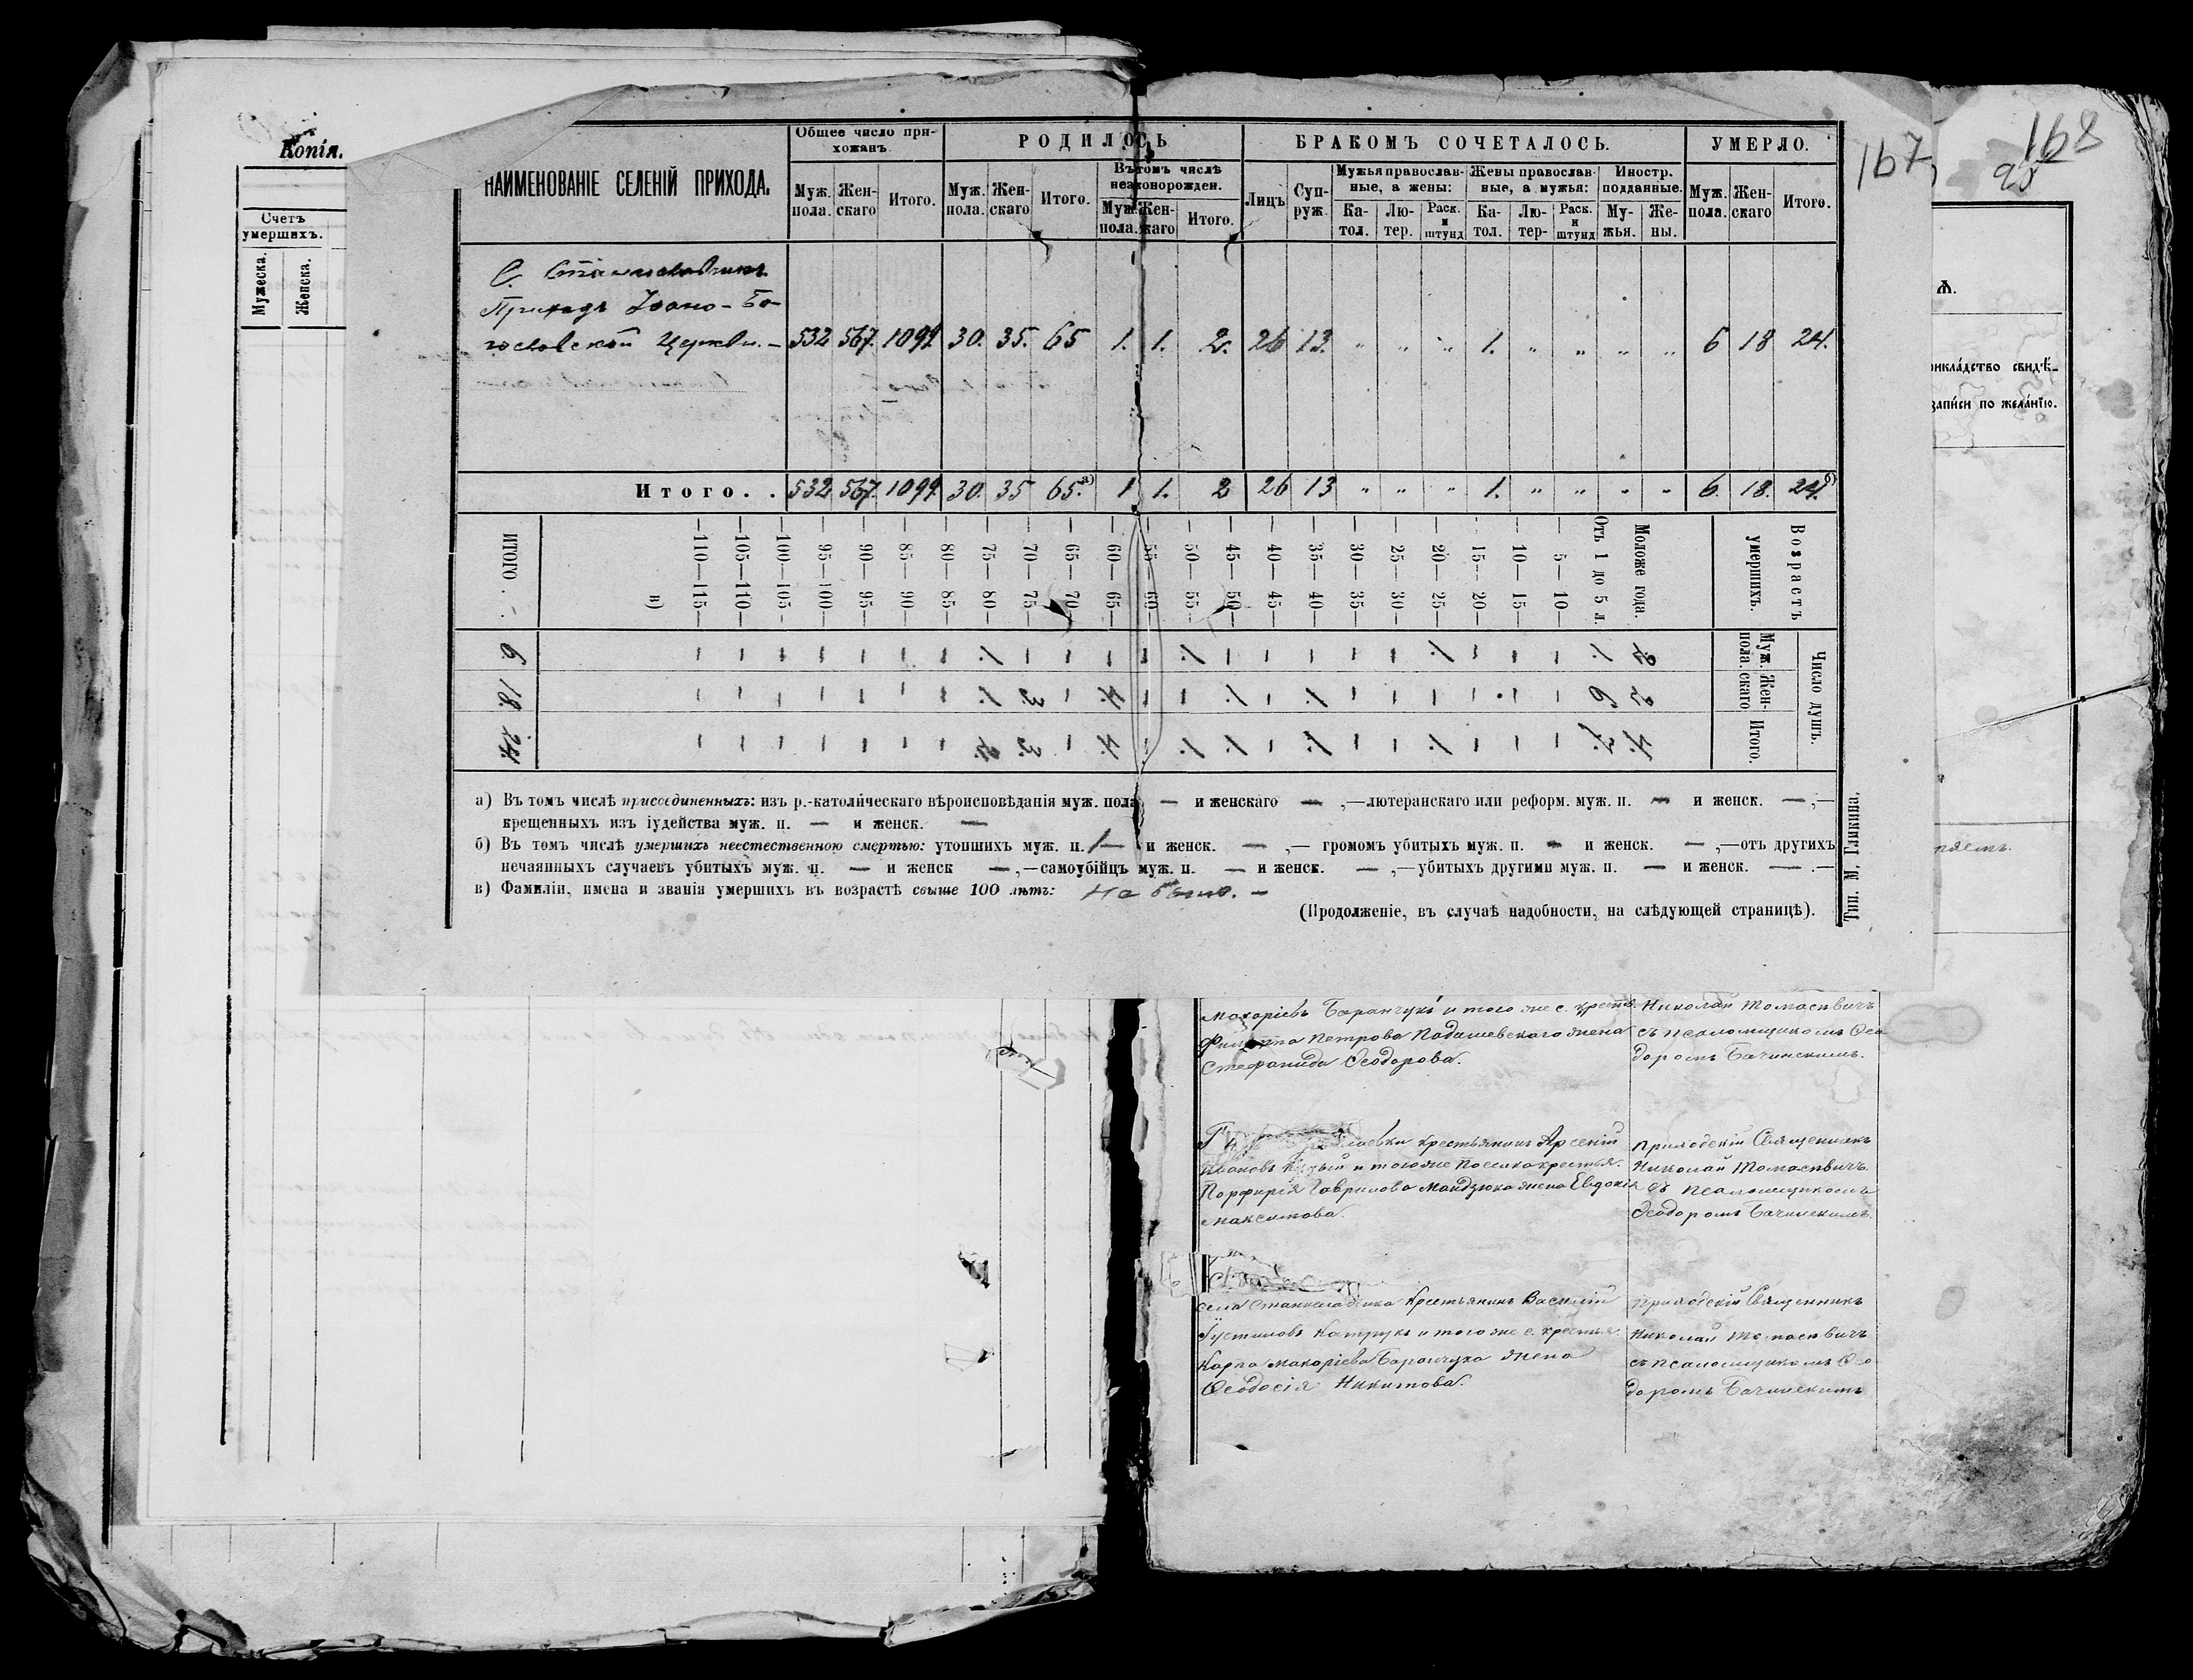 Копія.
Счетъ
умершихъ.
Мужеска.
Женска.
167
168
95
НАИМЕНОВАНІЕ СЕЛЕНІЙ ПРИХОДА.
Общее число при-
хожанъ.
Муж. пола.
Жен- скаго
Итого.
РОДИЛОСЬ
Муж. пола.
Жен- скаго
Итого.
Въ томъ числѣ
незаконорожден.
Муж. пола.
Жен- скаго
Итого.
БРАКОМЪ СОЧЕТАЛОСЬ.
Лицъ
Суп- руж.
Мужья православ-
ные, а жены:
Ка- тол.
Лю- тер.
Раск. и штунд
Жены православ-
ные, а мужья:
Ка- тол.
Лю- тер-
Раск. и штунд
Иностр.
подданные.
Му- жья.
Же- ны.
УМЕРЛО.
Муж. пола.
Жен- скаго
Итого.
С. Станиславчикъ
Приходъ Іоано-Бо-
гословской Церкви. – 532 567. 1099. 30. 35. 65 1. 1. 2. 26 13. „ „ „ 1. „ „ „ „ 6 18 24.
Итого. . 532 567. 1099. 30. 35 65.а) 1 1. 2 26 13 „ „ „ 1. „ „ „ „ 6. 18. 24.б)
Возрастъ
умершихъ.
Число душъ.
Муж. пола.
Жен- скаго
Итого.
Моложе года.
Отъ 1 до 5 л.
— 5—10—
—10—15—
—15—20—
—20—25—
—25—30—
—30—35—
—35—40—
—40—45—
—45—50—
—50—55—
—55—60—
—60—65—
—65—70—
—70—75—
—75—80—
—80—85—
—85—90—
—90—95—
—95—100—
—100—105—
—105—110—
—110—115—
в)
ИТОГО . .
6. 18. 24.
а) Въ томъ числѣ присоединенныхъ: изъ р.-католическаго вѣроисповѣданія муж. пола — и женскаго — ,—лютеранскаго или реформ. муж. п. — и женск. — ,—
крещенныхъ изъ іудейства муж. п. — и женск. —
б) Въ томъ числѣ умершихъ неестественною смертью: утопшихъ муж. п. 1 — и женск. — ,— громомъ убитыхъ муж. п. — и женск. — ,—отъ другихъ
нечаянныхъ случаевъ убитыхъ муж. п. — и женск — ,—самоубійцъ муж. п. — и женск. — ,—убитыхъ другими муж. п. — и женск. — .—
в) Фамиліи, имена и званія умершихъ въ возрастѣ свыше 100 лѣтъ: Не было. –
(Продолженіе, въ случаѣ надобности, на слѣдующей страницѣ).
Тип. М. Гликина.
Ѧ.
рикла́дство свидѣ-
запи́си по жела́нїю.
Макоріевъ Баранчукъ и того же с. крест. Николай Томасевичъ
Филиппа Петрова Подашевскаго жена съ псаломщикомъ Ѳео
Стефанида Ѳеодорова. доромъ Бачинскимъ.
крестьянинъ Арсеній Приходскій Священникъ
Ивановъ и того же поселка крестья. Николай Томасевичъ
Порфирія Гаврилова Мандзюка жена Евдокія съ псаломщикомъ
Максимова. Ѳеодоромъ Бачинскимъ.
села Станиславчика крестьянинъ Василій Приходскій Священникъ
Іустиновъ Катрукъ и того же с. крестья. Николай Томасевичъ
Карпа Макоріева Баранчука жена съ псаломщикомъ Ѳео
Ѳеодосія Никитова. доромъ Бачинскимъ